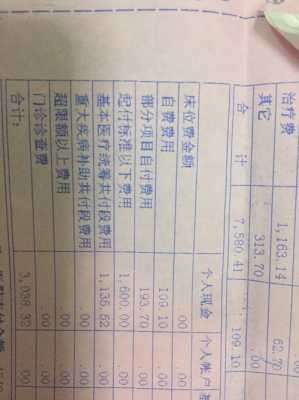 治疗费 1,163.14 62.70
其它 313.70 .00
合 计 7,580.41 109.10
个人现金 个人帐户
床位费金额 .00 .00
自费费用 109.10 .00
部分项目自付费用 193.70 .00
起付标准以下费用 1,600.00 .00
基本医疗统筹共付段费用 1,135.52 .00
重大疾病补助共付段费用 .00 .00
超限额以上费用 .00 .00
门诊诊查费 .00 .00
合计: 3,038.32 .00